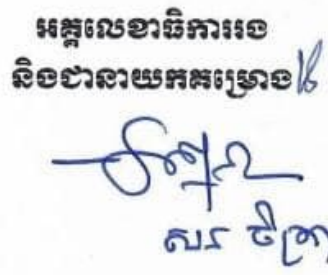 អគ្គលេខាធិការរង
និងជានាយកគម្រោង
សរ ចិត្រា